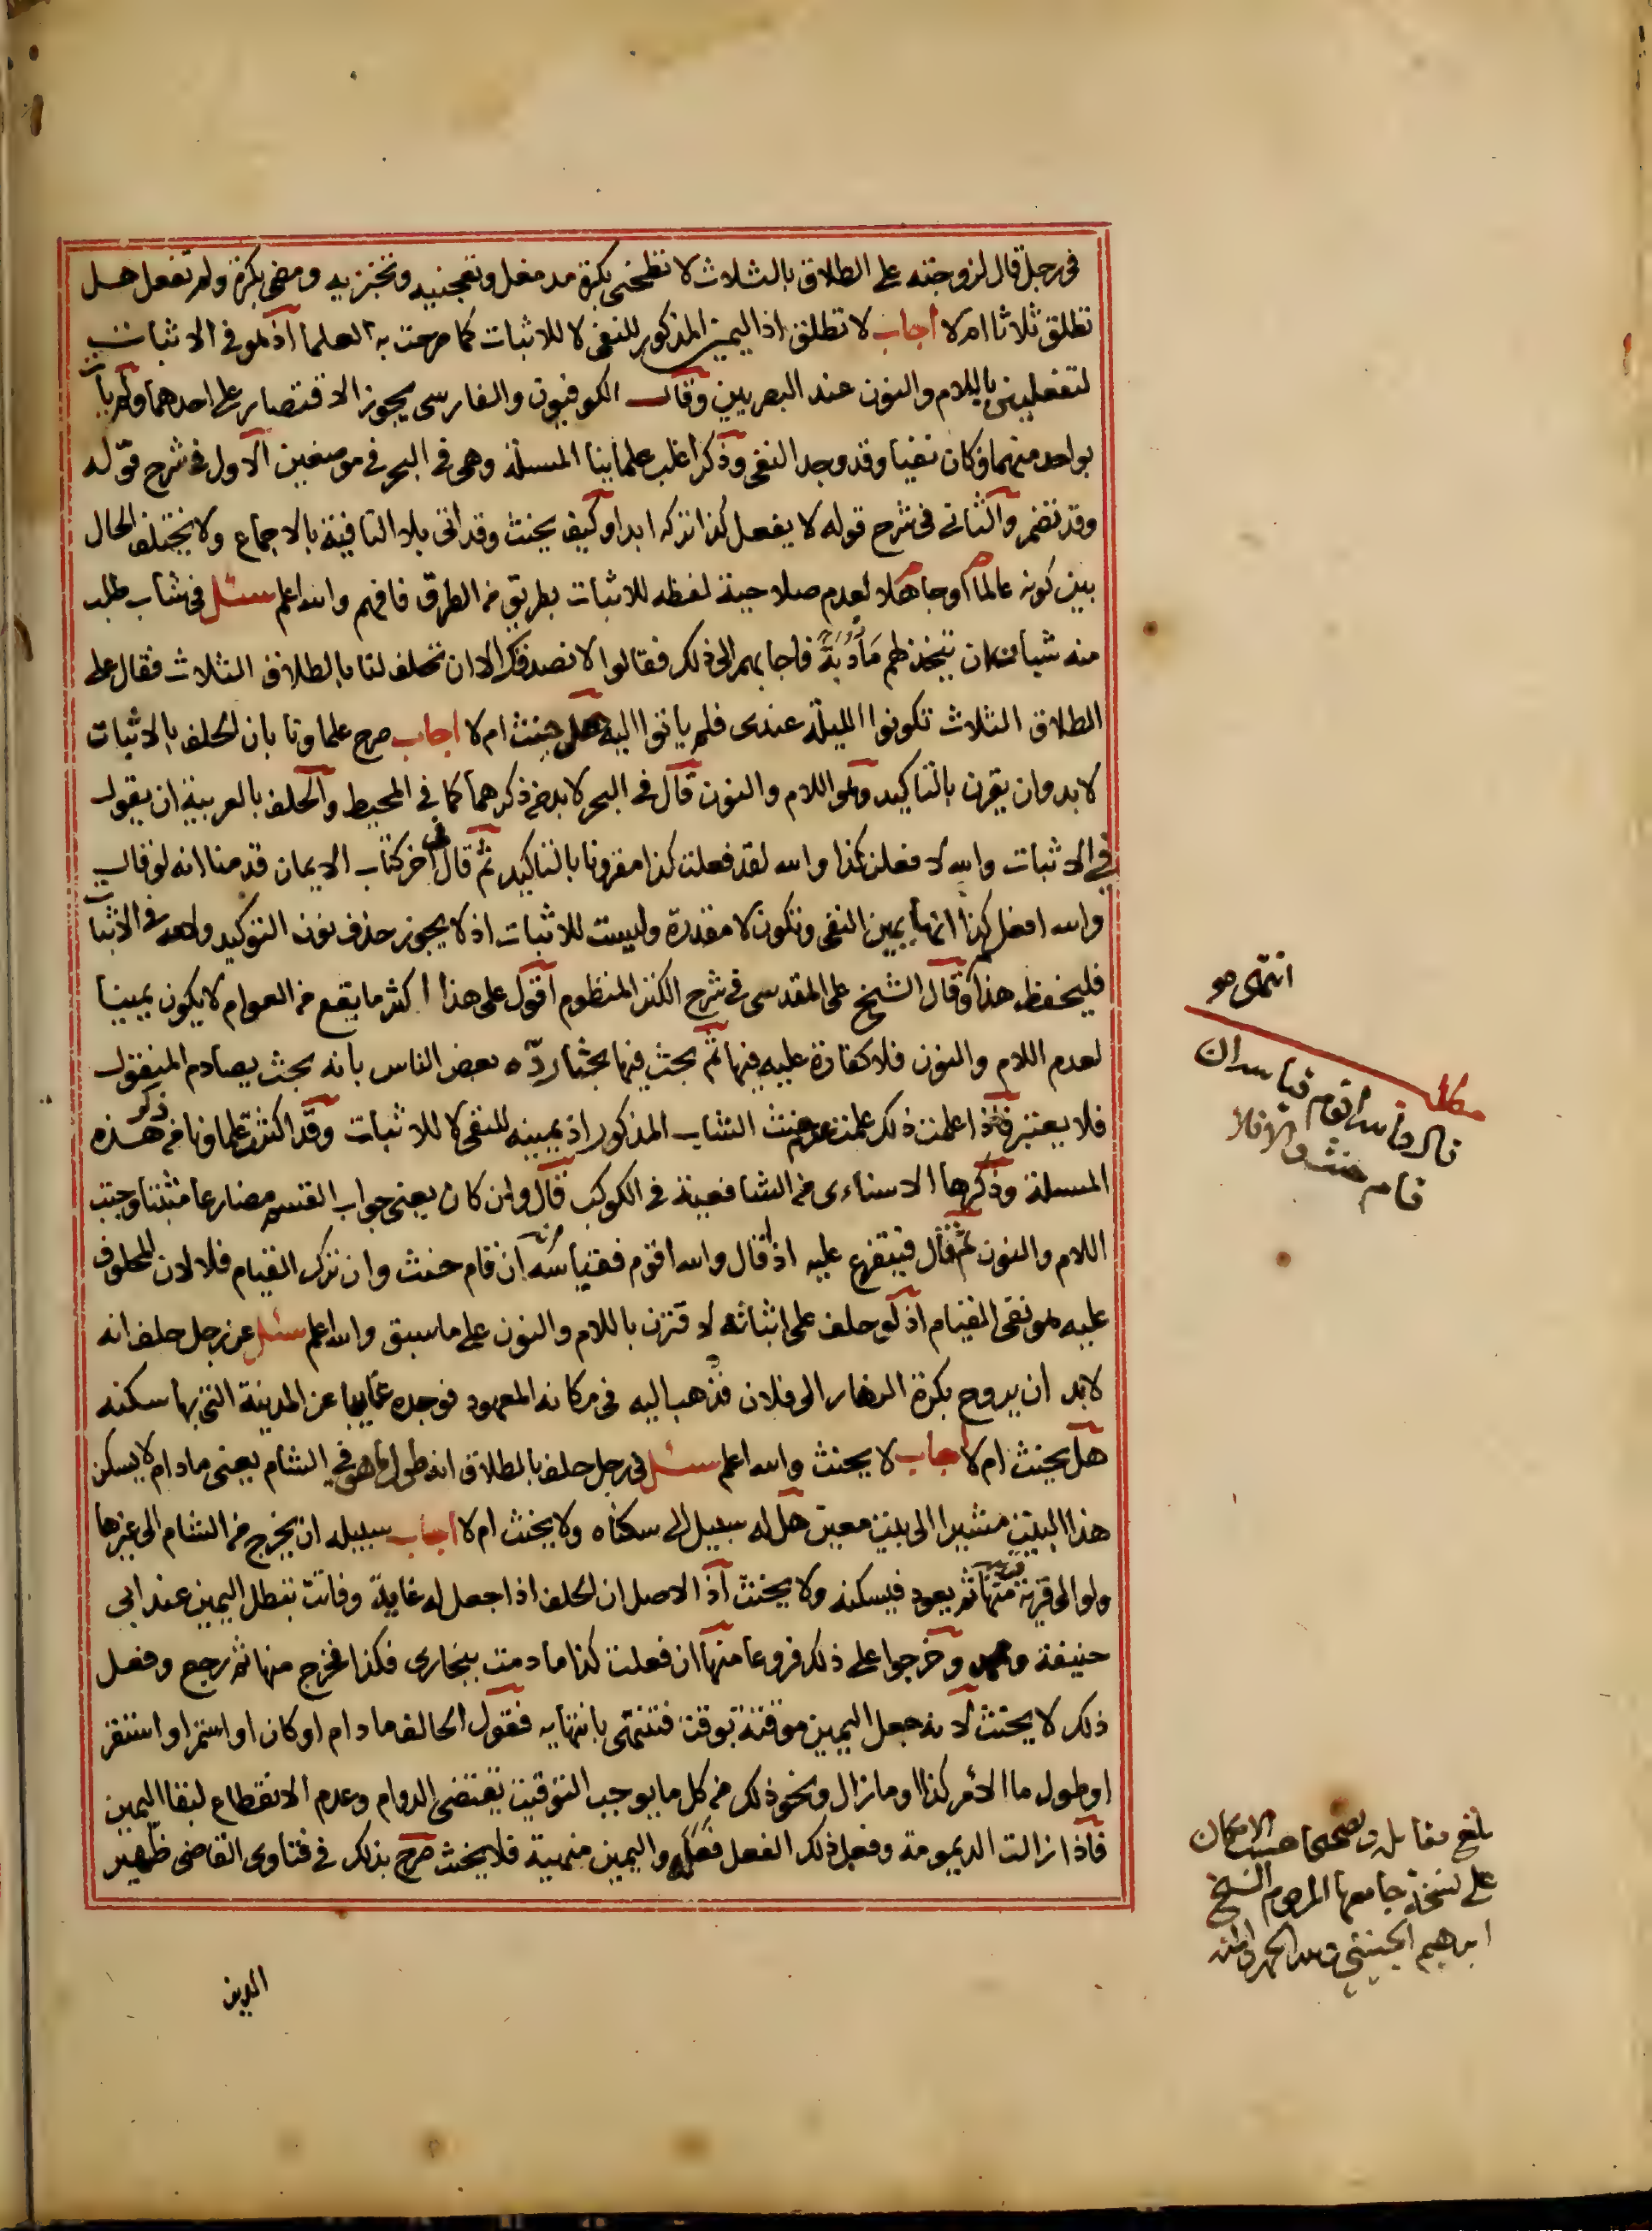 في رجل قال لزوجته على الطلاق بالثلاث لا تطحنى بكرة مد مغل وتعجنيه وتخبزيه ومضى بكرة ولم تفعل هل
تطلق ثلاثا ام لا اجاب لا تطلق اذ اليمين المذكور للنفى لا للاثبات كما صرحت به العلما اذ هو فى الاثبات
لتفعلين باللام والنون عند البصريين وقال الكوفيون والفارسى يجوز الاقتصار على احدهما ولم يات
بواحد منهما فكان نفيا وقد وجد النفى وذكر اغلب علماينا المسئلة وهى فى البحر فى موضعين الاول فى شرح قوله
وقد تضمر والثانى فى شرح قوله لا يفعل كذا تركه ابدا وكيف يحنث وقد اتى بلا النافية بالاجماع ولا يختلف الحال
بين كونه عالما او جاهلا لعدم صلاحية لفظه للاثبات بطريق من الطرق فافهم والله اعلم سئل فى شاب طلب
منه شبان ان يتخذ لهم مَأْدُبَةً فاجابهم الى ذلك فقالوا لا نصدقك الا ان تحلف لنا بالطلاق الثلاث فقال على
الطلاق الثلاث تكونوا الليلة عندى فلم ياتوا اليه هل حنث ام لا اجاب صرح علماونا بان الحلف بالاثبات
لا بد وان يقرن بالتاكيد وهو اللام والنون قال فى البحر لا بد من ذكرهما كما فى المحيط والحلف بالعربية ان يقول
فى الاثبات والله لافعلن كذا والله لقد فعلت كذا مقرونا بالتاكيد ثم قال فى اخر كتاب الايمان قدمنا انه لو قال
والله افعل كذا انها يمين النفى وتكون لا مقدرة وليست للاثبات اذ لا يجوز حذف نون التوكيد ولامه فى الاثبات
فليحفظ هذا وقال الشيخ على المقدسى فى شرح الكنز المنظوم اقول على هذا اكثر ما يقع من العوام لا يكون يمينا
لعدم اللام والنون فلا كفارة عليه فيها ثم بحث فيها بحثا ردّه بعض الناس بانه بحث يصادم المنقول
فلا يعتبر فاذا علمت ذلك علمت عدم حنث الشاب المذكور اذ يمينه للنفى لا للاثبات وقد اكثر علماونا من ذكر هذه
المسئلة وذكرها الاسناءى من الشافعية فى الكوكب قال وان كان يعنى جواب القسم مضارعا مثبتا وجب
اللام والنون ثم قال فيتفرع عليه اذا قال والله اقوم فقياسه انه ان قام حنث وان ترك القيام فلا لان المحلوف
عليه هو نفى القيام اذ لو حلف على اثباته لاقترن باللام والنون على ما سبق والله اعلم سئل عن رجل حلف انه
لابد ان يروح بكرة النهار الى فلان فذهب اليه فى مكانه المعهود فوجده غايبا عن المدينة التى بها سكنه
هل يحنث ام لا اجاب لا يحنث والله اعلم سئل فى رجل حلف بالطلاق انه طول ما هو فى الشام يعنى مادام لا يسكن
هذا البيت مشيرا الى بيت معين هل له سبيل الى سكناه ولا يحنث ام لا اجاب سبيله ان يخرج من الشام الى غيرها
ولو الى قرية منها ثم يعود فيسكنه ولا يحنث اذ الاصل ان الحلف اذا جعل له غاية وفاتت تبطل اليمين عند ابى
حنيفة ومحمد وخرجوا على ذلك فروعا منها ان فعلت كذا ما دمت ببخارى فكذا فخرج منها ثم رجع وفعل
ذلك لا يحنث لانه جعل اليمين موقتة بوقت فتنتهى بانتهايه فقول الحالف مادام او كان او استمر او استقر
او طول ما الأمر كذا او مازال ونحو ذلك من كل ما يوجب التوقيت يقتضى الدوام وعدم الانقطاع لبقا اليمين
فاذا زالت الديمومة وفعل ذلك الفعل فعله واليمين منهية فلا يحنث صرح بذلك فى فتاوى القاضى ظهير
الدين
انتهى هو
قال والله اقوم قياسه ان
قام حنث والا فلا
بلغ مقابلة وتصحيحا حسب الامكان
على نسخة جامعها المرحوم الشيخ
ابراهيم الجينيني